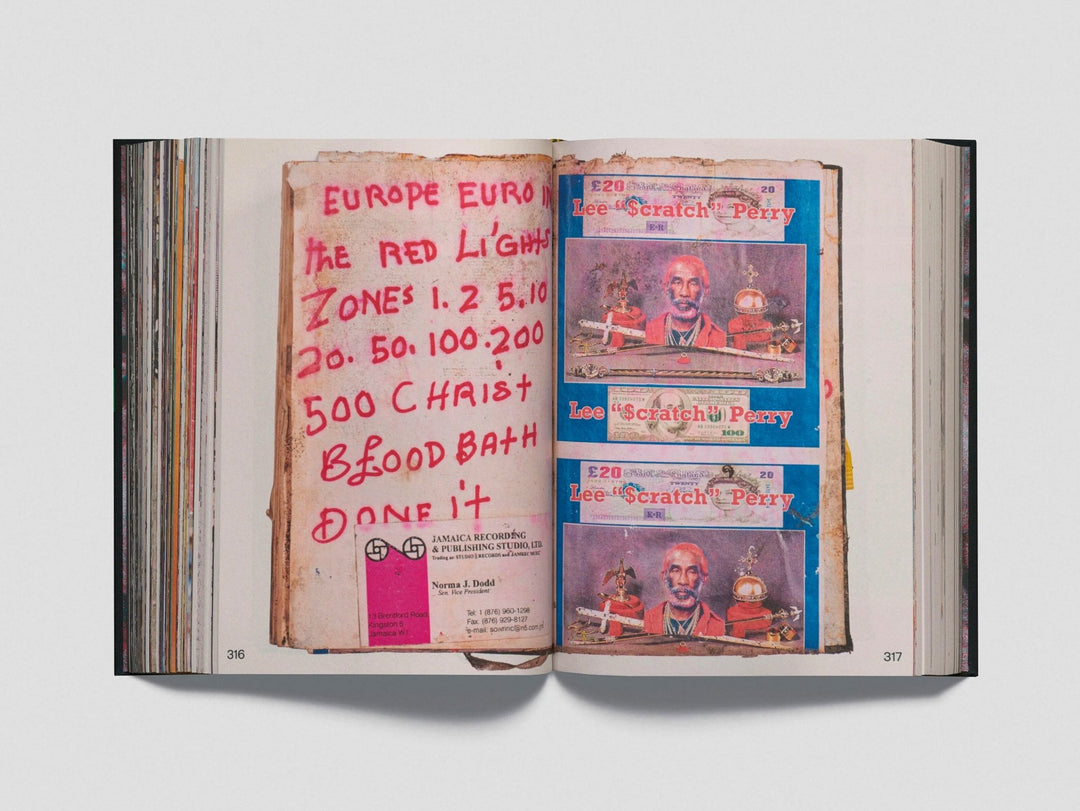 EUROPE EURO IN
tHE RED LI'GHtS
ZONES 1. 2 5.10
20. 50. 100.200
500 CHRISt
B£OOD BAtH
DONE it
JAMAICA RECORDING
& PUBLISHING STUDIO, LTD.
Trading as: STUDIO 1 RECORDS and JAMREC MUSIC
Norma J. Dodd
Sen. Vice President
13 Brentford Road
Kingston 5
Jamaica W.I.
Tel: 1 (876) 960-1298
Fax. (876) 929-8127
316
£20
20
TWENTY
Lee “$cratch” Perry
E·R
Lee “$cratch” Perry
100
£20
20
TWENTY
Lee “$cratch” Perry
E·R
317